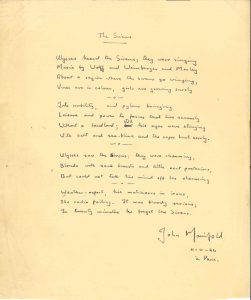 The Sirens
Ulysses heard the Sirens; they were singing
Music by Wolf and Weinberger and Morley
About a region where the swans go winging,
Vines are in colour, girls are growing
nobility, and pylons bringing
Leisure and power to farms that live securely
Without a landlord; his eyes were stinging
With salt and sea-blink and the ropes hurt
Ulysses saw the Sirens; they were charming,
Blonde with snub breasts and little neat posteriors,
But could not take his mind off the alarming
Weather-report, his mutineers in irons,
The radio failing. It was bloody serious;
In twenty minutes he forgot the Sirens.
John Manifold